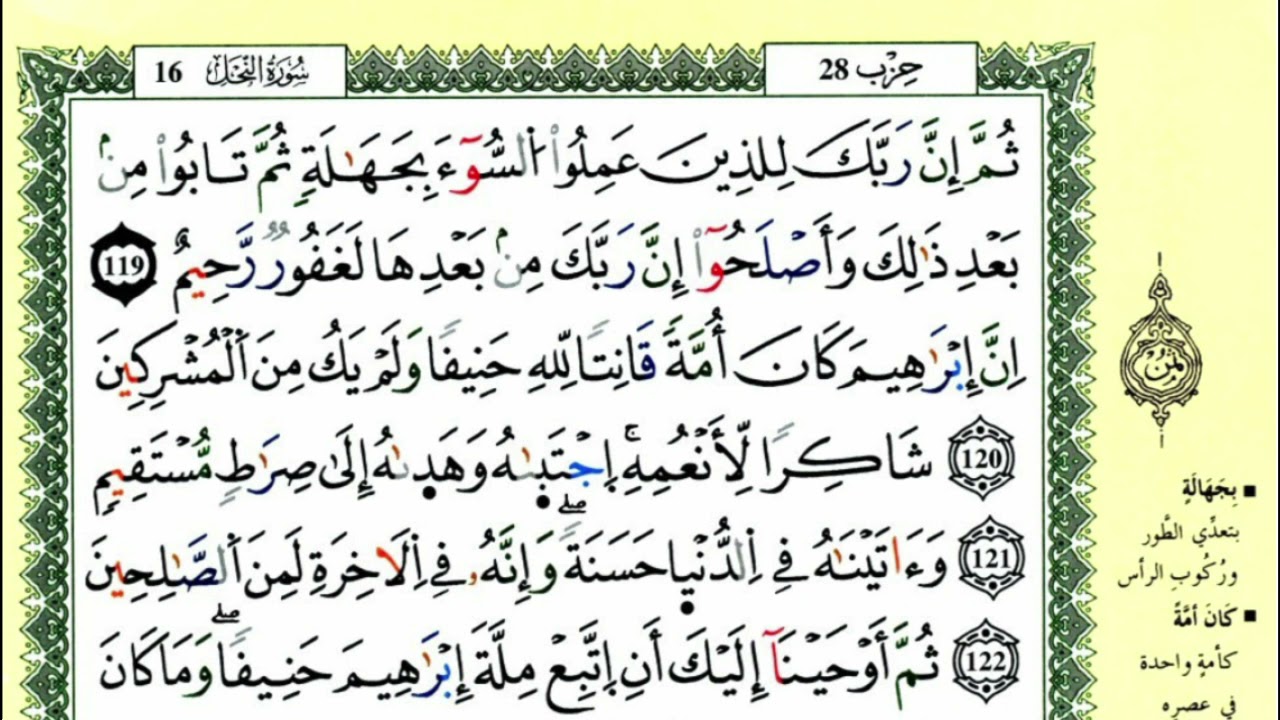 حِزْب 28
سُورَةُ النَّحْلِ 16
ثُمَّ إِنَّ رَبَّكَ لِلذِينَ عَمِلُوا۟ اُ۬لسُّوٓءَ بِجَهَٰلَةٖ ثُمَّ تَابُوا۟ مِنۢ
بَعْدِ ذَٰلِكَ وَأَصْلَحُوٓا۟ إِنَّ رَبَّكَ مِنۢ بَعْدِهَا لَغَفُورٞ رَّحِيمٌ 119
اِنَّ إِبْرَٰهِيمَ كَانَ أُمَّةٗ قَانِتاٗ لِلهِ حَنِيفاٗ وَلَمْ يَكُ مِنَ اَ۬لْمُشْرِكِينَ
120 شَاكِراٗ لِّأَنْعُمِهِۚ اِ۪جْتَب۪ىٰهُ وَهَد۪ىٰهُ إِلَىٰ صِرَٰطٖ مُّسْتَقِيمٖ
صلے
121 وَءَاتَيْنَٰهُ فِے اِ۬لدُّنْي۪ا حَسَنَةٗ وَإِنَّهُۥ فِے اِ۬لَاخِرَةِ لَمِنَ اَ۬لصَّٰلِحِينَ
صلے
122 ثُمَّ أَوْحَيْنَآ إِلَيْكَ أَنِ اِ۪تَّبِعْ مِلَّةَ إِبْرَٰهِيمَ حَنِيفاٗ وَمَا كَانَ
ثُمُن
■ بِجَهَالَةٍ
بتعدِّي الطَّور
ورُكُوبِ الرأس
■ كَانَ أمَّةً
كأمةٍ واحدة
في عصره